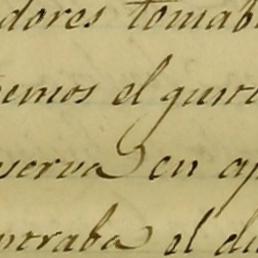 dores tomab
emos el gusto
serva en ap
noraba el du